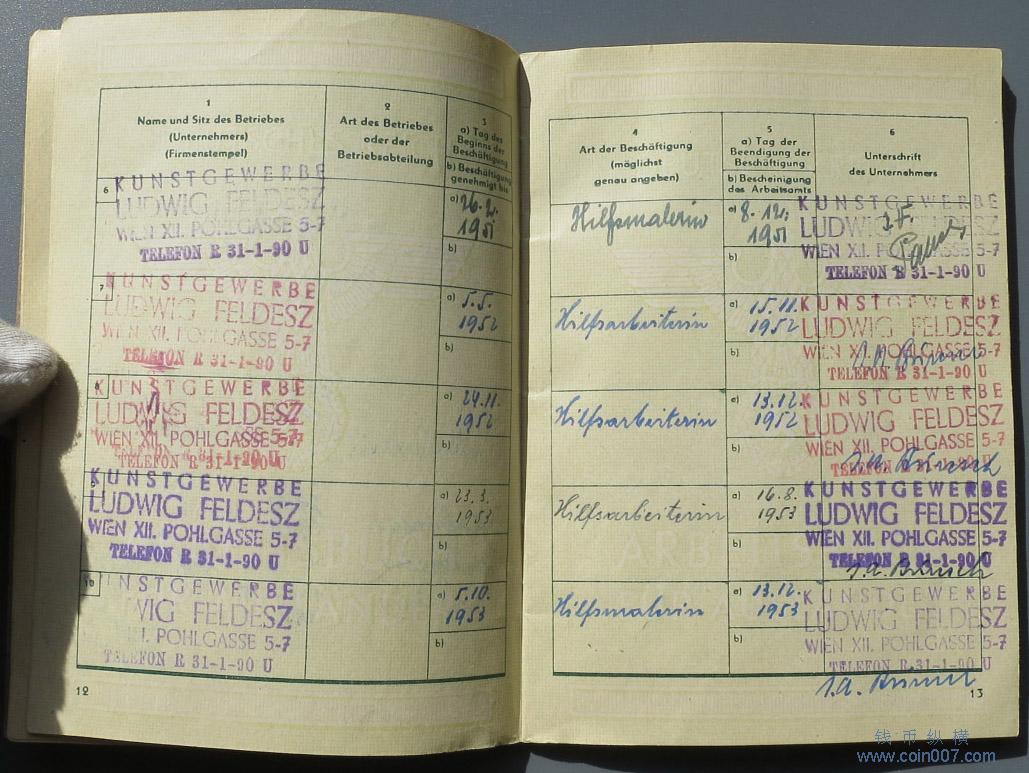 1
Name und Sitz des Betriebes
(Unternehmers)
(Firmenstempel)
2
Art des Betriebes
oder der
Betriebsabteilung
3
a) Tag des
Beginns der
Beschäftigung
b) Beschäftigung
genehmigt bis
6
KUNSTGEWERBE
LUDWIG FELDESZ
WIEN XII. POHLGASSE 5-7
TELEFON R 31-1-90 U
a) 26.2.
1951
b)
7
KUNSTGEWERBE
LUDWIG FELDESZ
WIEN XII. POHLGASSE 5-7
TELEFON R 31-1-90 U
a) 5.5.
1952
b)
8
KUNSTGEWERBE
LUDWIG FELDESZ
WIEN XII. POHLGASSE 5-7
TELEFON R 31-1-90 U
a) 24.11.
1952
b)
KUNSTGEWERBE
LUDWIG FELDESZ
WIEN XII. POHLGASSE 5-7
TELEFON R 31-1-90 U
a) 23.3.
1953
b)
10
UNSTGEWERBE
WIG FELDESZ
II. POHLGASSE 5-7
TELEFON R 31-1-90 U
a) 5.10.
1953
b)
12
4
Art der Beschäftigung
(möglichst
genau angeben)
5
a) Tag der
Beendigung der
Beschäftigung
b) Bescheinigung
des Arbeitsamts
6
Unterschrift
des Unternehmers
Hilfsmalerin
a) 8.12.
1951
b)
KUNSTGEWERBE
LUDWIG FELDESZ
WIEN XII. POHLGASSE 5-7
TELEFON R 31-1-90 U
Hilfsarbeiterin
a) 15.11.
1952
b)
KUNSTGEWERBE
LUDWIG FELDESZ
WIEN XII. POHLGASSE 5-7
TELEFON R 31-1-90 U
Hilfsarbeiterin
a) 13.12.
1952
b)
KUNSTGEWERBE
LUDWIG FELDESZ
WIEN XII. POHLGASSE 5-7
TELEFON R 31-1-90 U
Hilfsarbeiterin
a) 16.8.
1953
b)
KUNSTGEWERBE
LUDWIG FELDESZ
WIEN XII. POHLGASSE 5-7
TELEFON R 31-1-90 U
Hilfsmalerin
a) 13.12.
1953
b)
KUNSTGEWERBE
LUDWIG FELDESZ
WIEN XII. POHLGASSE 5-7
TELEFON R 31-1-90 U
13
钱币纵横
www.coin007.com